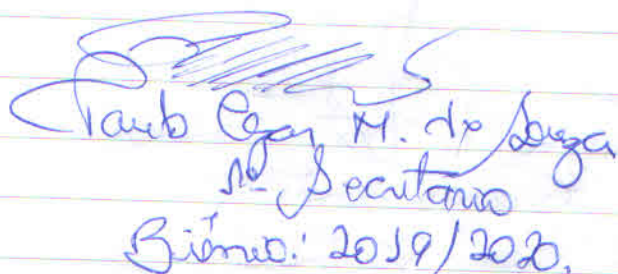 Paulo Cezar M. de Souza
1º Secretário
Biênio: 2019/2020.